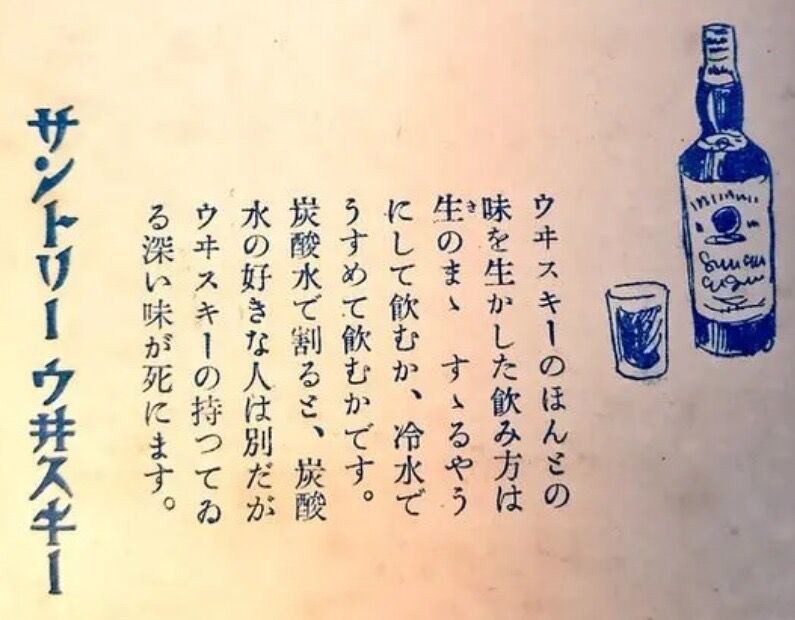 ウヰスキーのほんとの
味を生かした飲み方は
生きのまゝ すゝるやう
にして飲むか、冷水で
うすめて飲むかです。
炭酸水で割ると、炭酸
水の好きな人は別だが
ウヰスキーの持つてゐ
る深い味が死にます。
サントリーウ井スキー